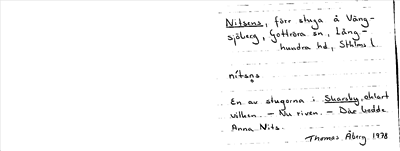 Nitsens, förr stuga å Väng-
sjöberg, Gottröra sn, Lång-
hundra hd, Sthlms l.
nitsns
En av stugorna i Skarsby, oklart
vilken. — Nu riven. — Där bodde
Anna Nits.
Thomas Åberg 1978